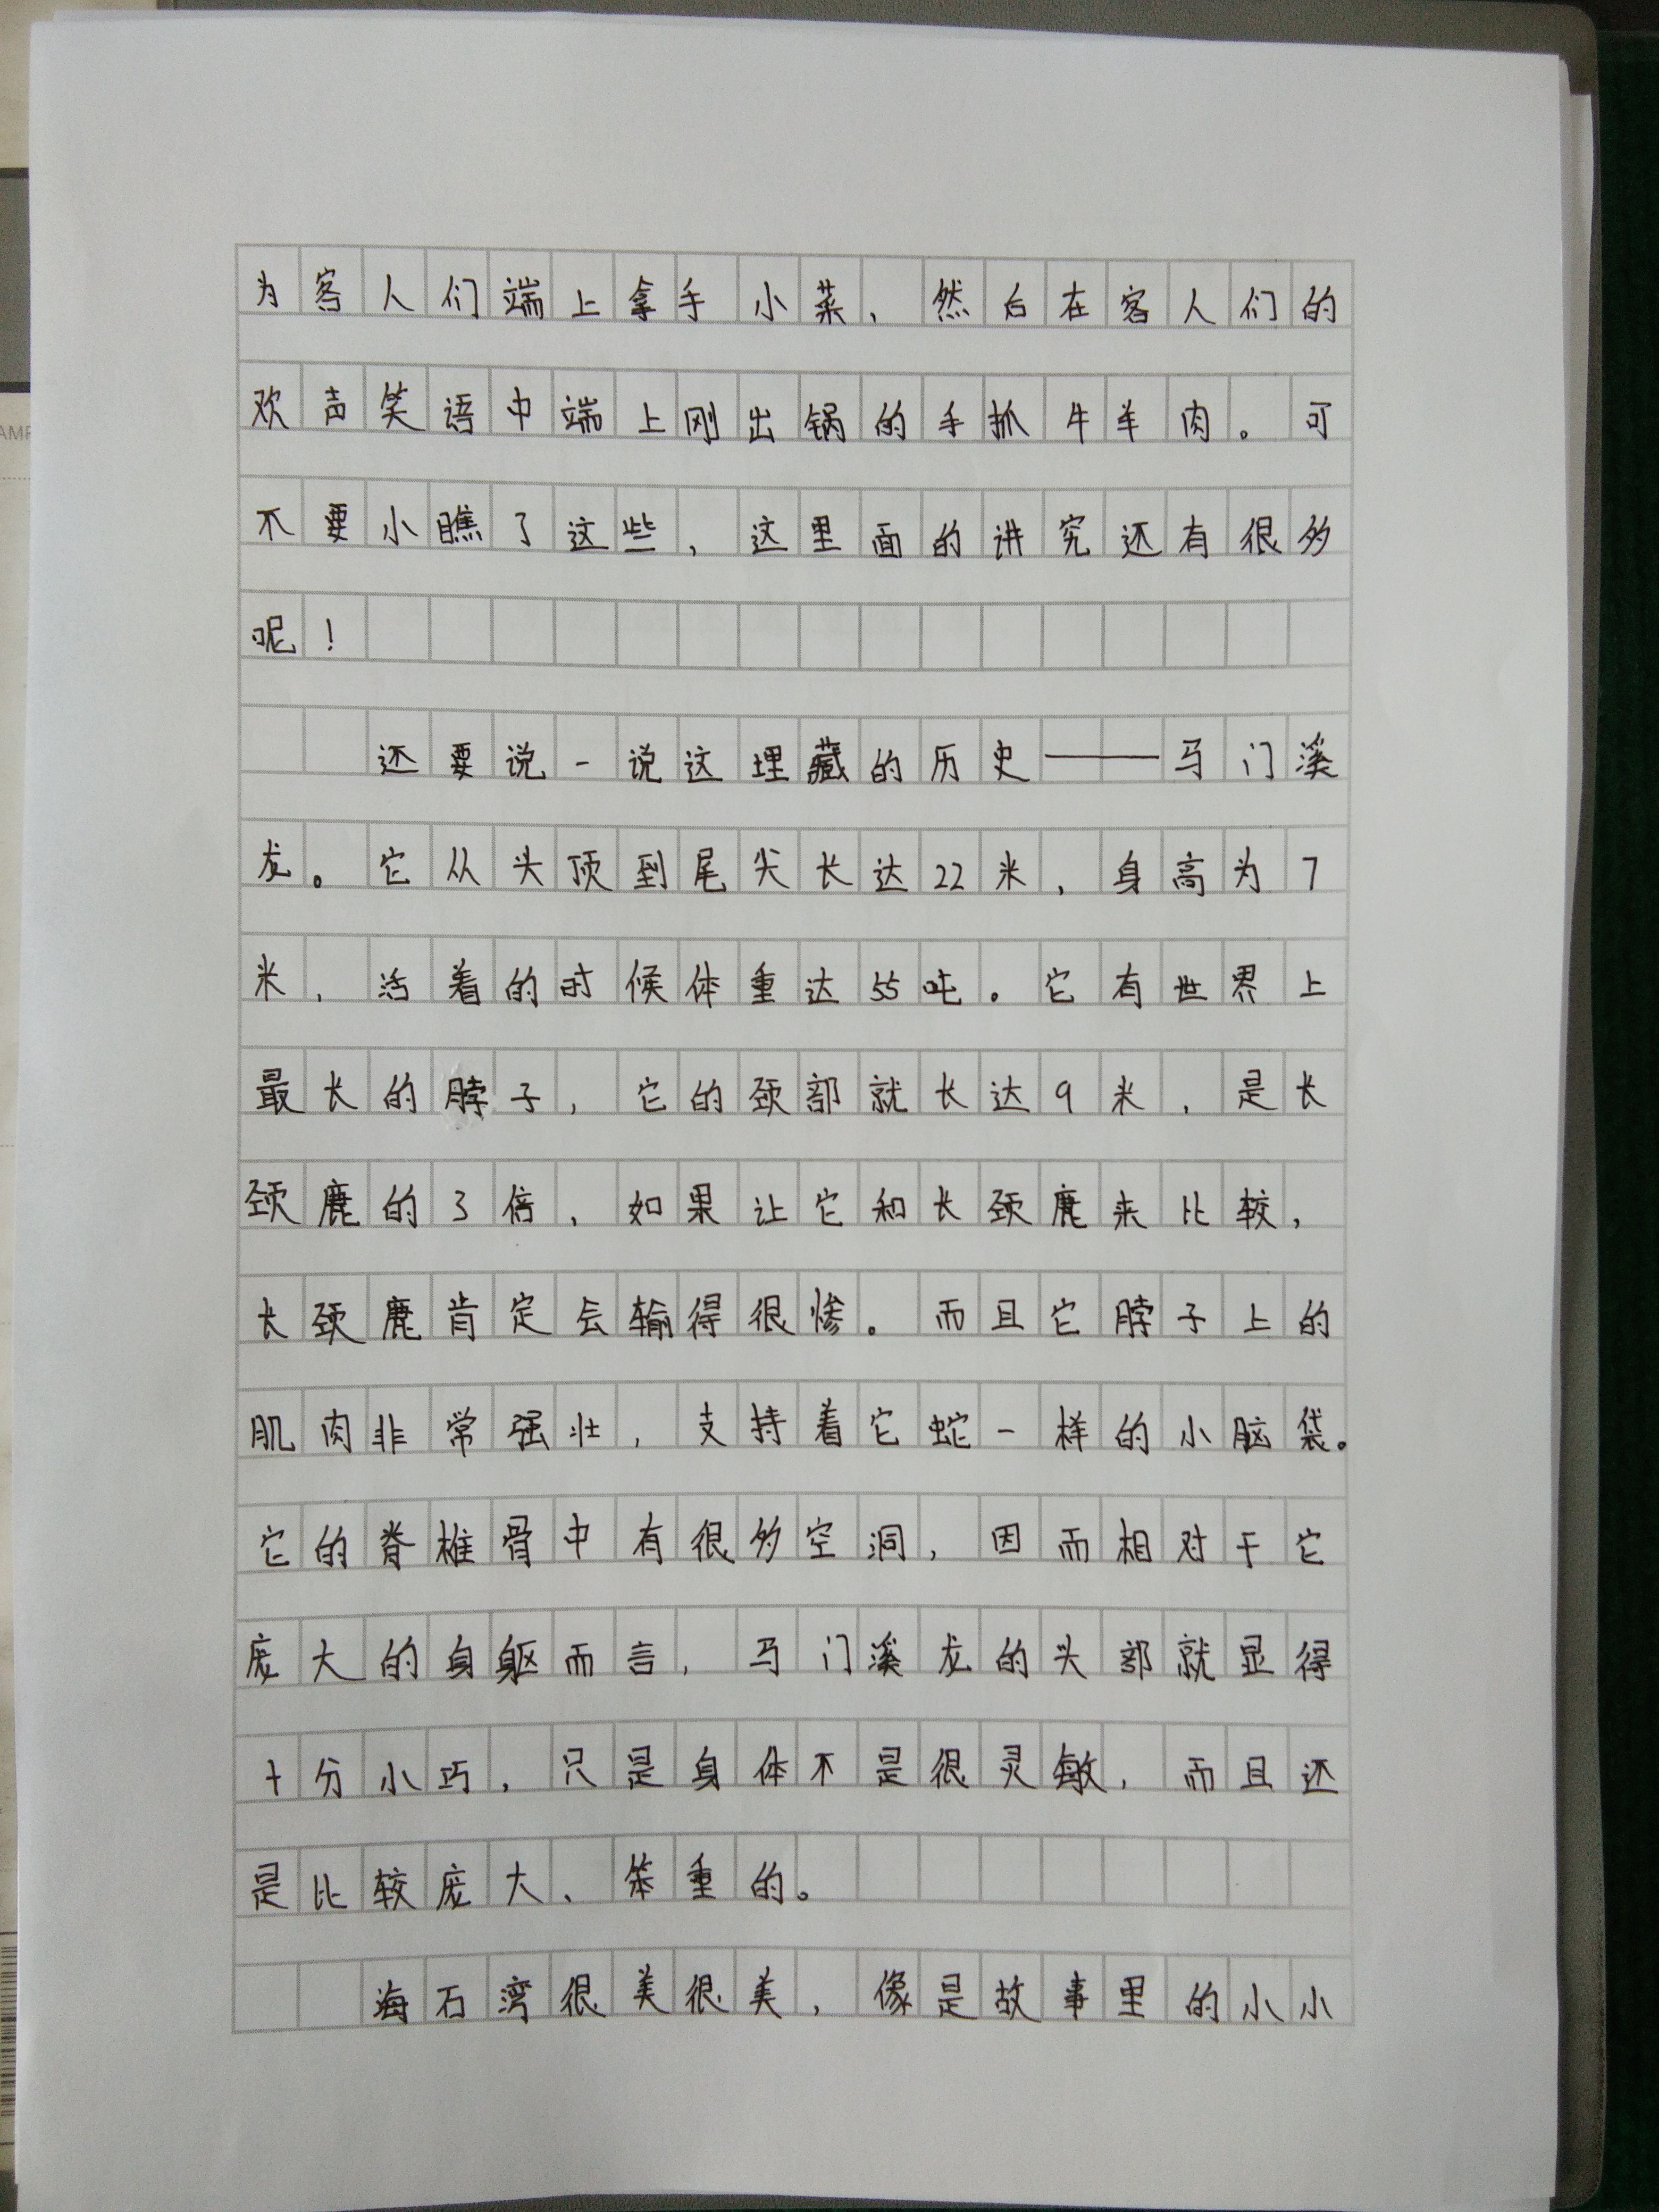 为客人们端上拿手小菜，然后在客人们的
欢声笑语中端上刚出锅的手抓牛羊肉。可
不要小瞧了这些，这里面的讲究还有很多
呢！
还要说一说这埋藏的历史——马门溪
龙。它从头顶到尾尖长达22米，身高为7
米，活着的时候体重达55吨。它有世界上
最长的脖子，它的颈部就长达9米，是长
颈鹿的3倍，如果让它和长颈鹿来比较，
长颈鹿肯定会输得很惨。而且它脖子上的
肌肉非常强壮，支持着它蛇一样的小脑袋。
它的脊椎骨中有很多空洞，因而相对于它
庞大的身躯而言，马门溪龙的头部就显得
十分小巧，只是身体不是很灵敏，而且还
是比较庞大、笨重的。
海石湾很美很美，像是故事里的小小